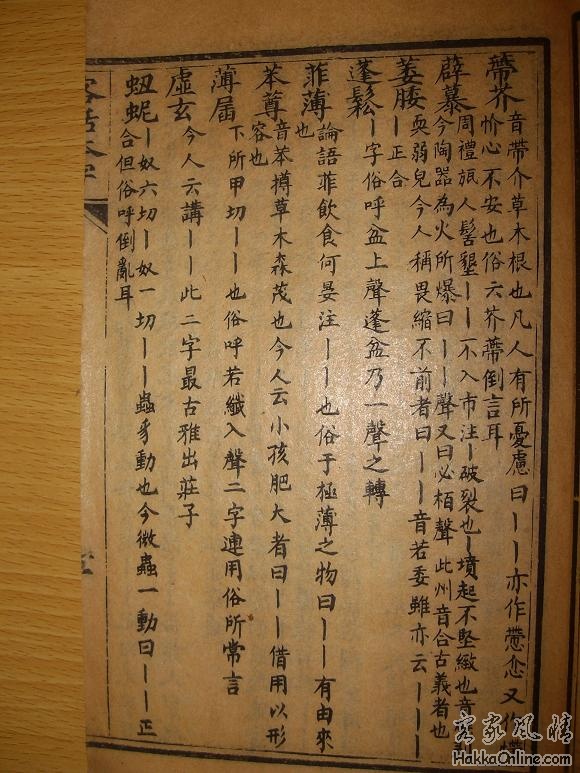 帶芥 音帶介草木根也凡人有所憂慮曰丨丨亦作懘忿又作
忦心不安也俗云芥帶倒言耳
辟暴 周禮旅人髻墾丨丨不入市注丨破裂也丨墳起不堅緻也音
今陶器為火所爆曰丨丨聲又曰必栢聲 此州音合古義者也
萎腇 丨正合
耎弱皃今人稱畏縮不前者曰丨丨音若委雖亦云丨丨
蓬鬆 丨字俗呼盆上聲蓬盆乃一聲之轉
菲薄 論語菲飲食何晏注丨丨也俗于極薄之物曰丨丨有由來
也
苯尊 音苯樽草木森茂也今人云小孩肥大者曰丨丨借用以形
容也
薄屆 下所甲切丨丨也俗呼若纖入聲二字連用俗所常言
虛玄 今人云講丨丨此二字最古雅出莊子
蚻蚭 丨奴六切丨奴一切丨丨蟲豸動也今微蟲一動曰丨丨正
合但俗呼倒亂耳
客家風情
HakkaOnline.com